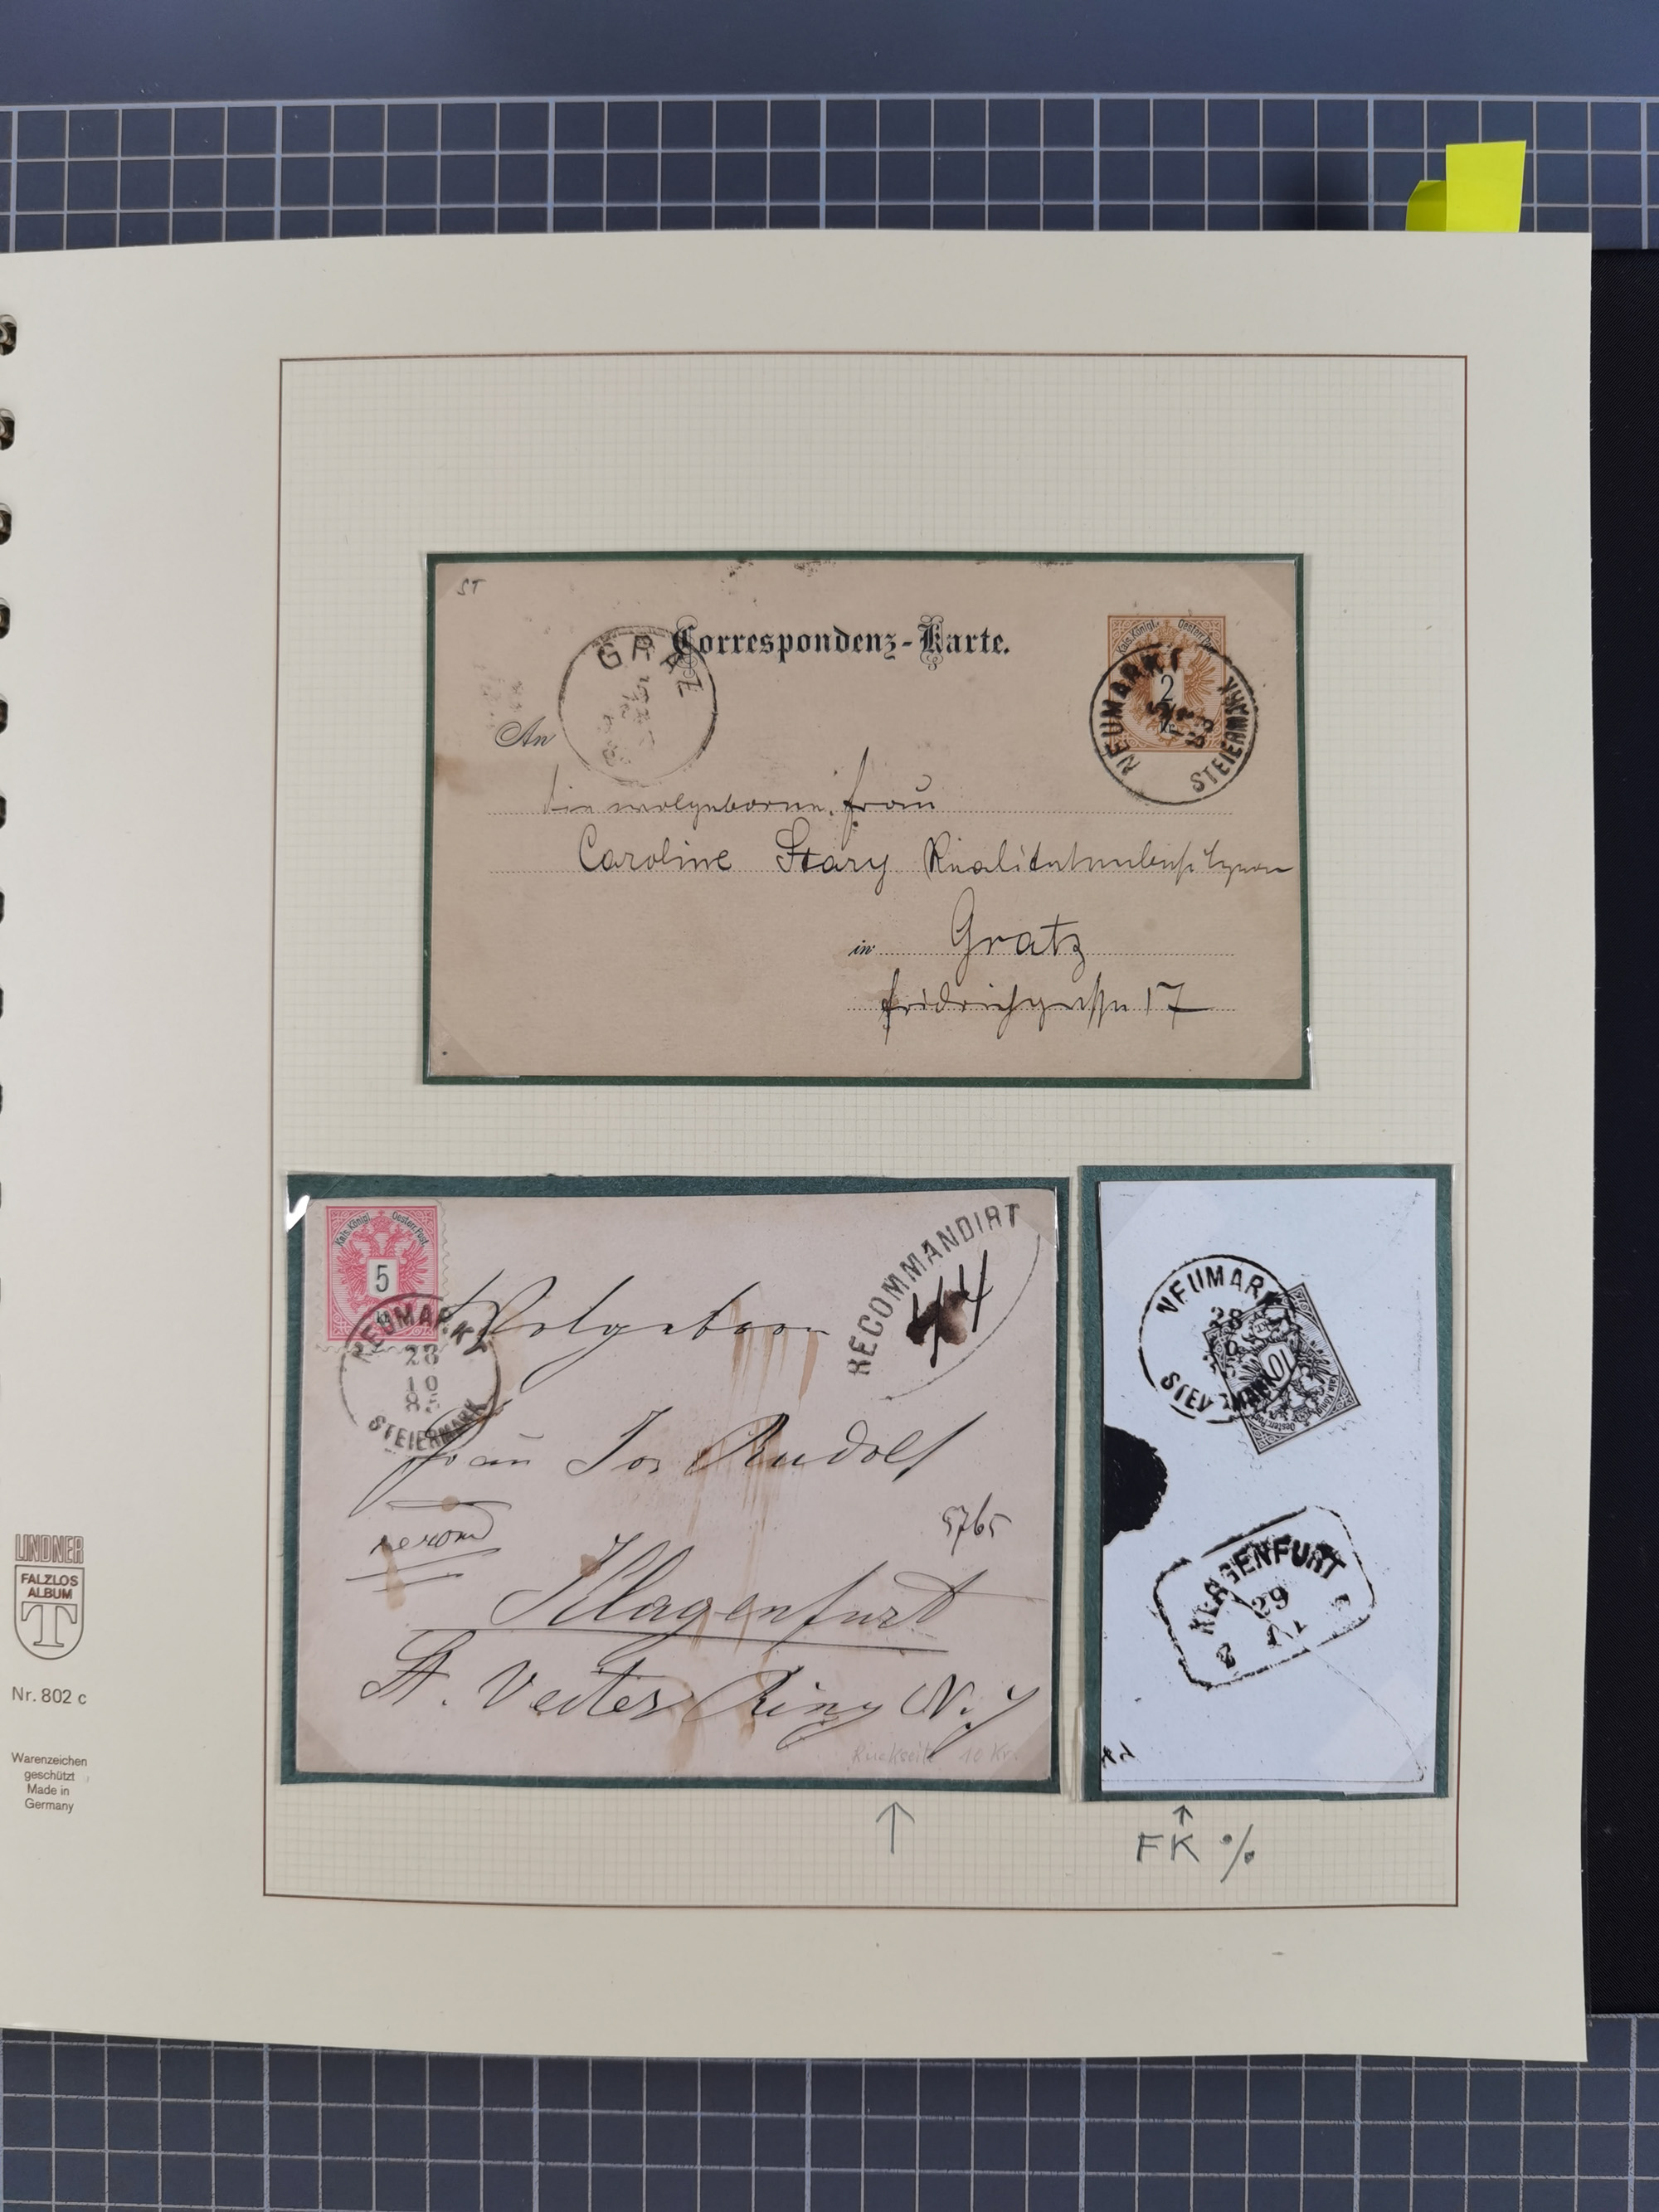 ST
Correspondenz-Karte.
GRAZ
Kais. Königl. Oesterr. Post.
2
NEUMARKT
STEIERMARK
An
Frau
Caroline Stary
in Gratz
17
Kais. Königl. Oesterr. Post.
5
kr.
NEUMARKT
28
10
STEIERMARK
RECOMMANDIRT
44
Frau Jos Rudolf
recom
5765
Klagenfurt
St. Veiter Ring N.
Rückseite 10 Kr.
NEUMARK
28
10
KLAGENFURT
29
FK %
LINDNER
FALZLOS
ALBUM
T
Nr. 802 c
Warenzeichen
geschützt
Made in
Germany